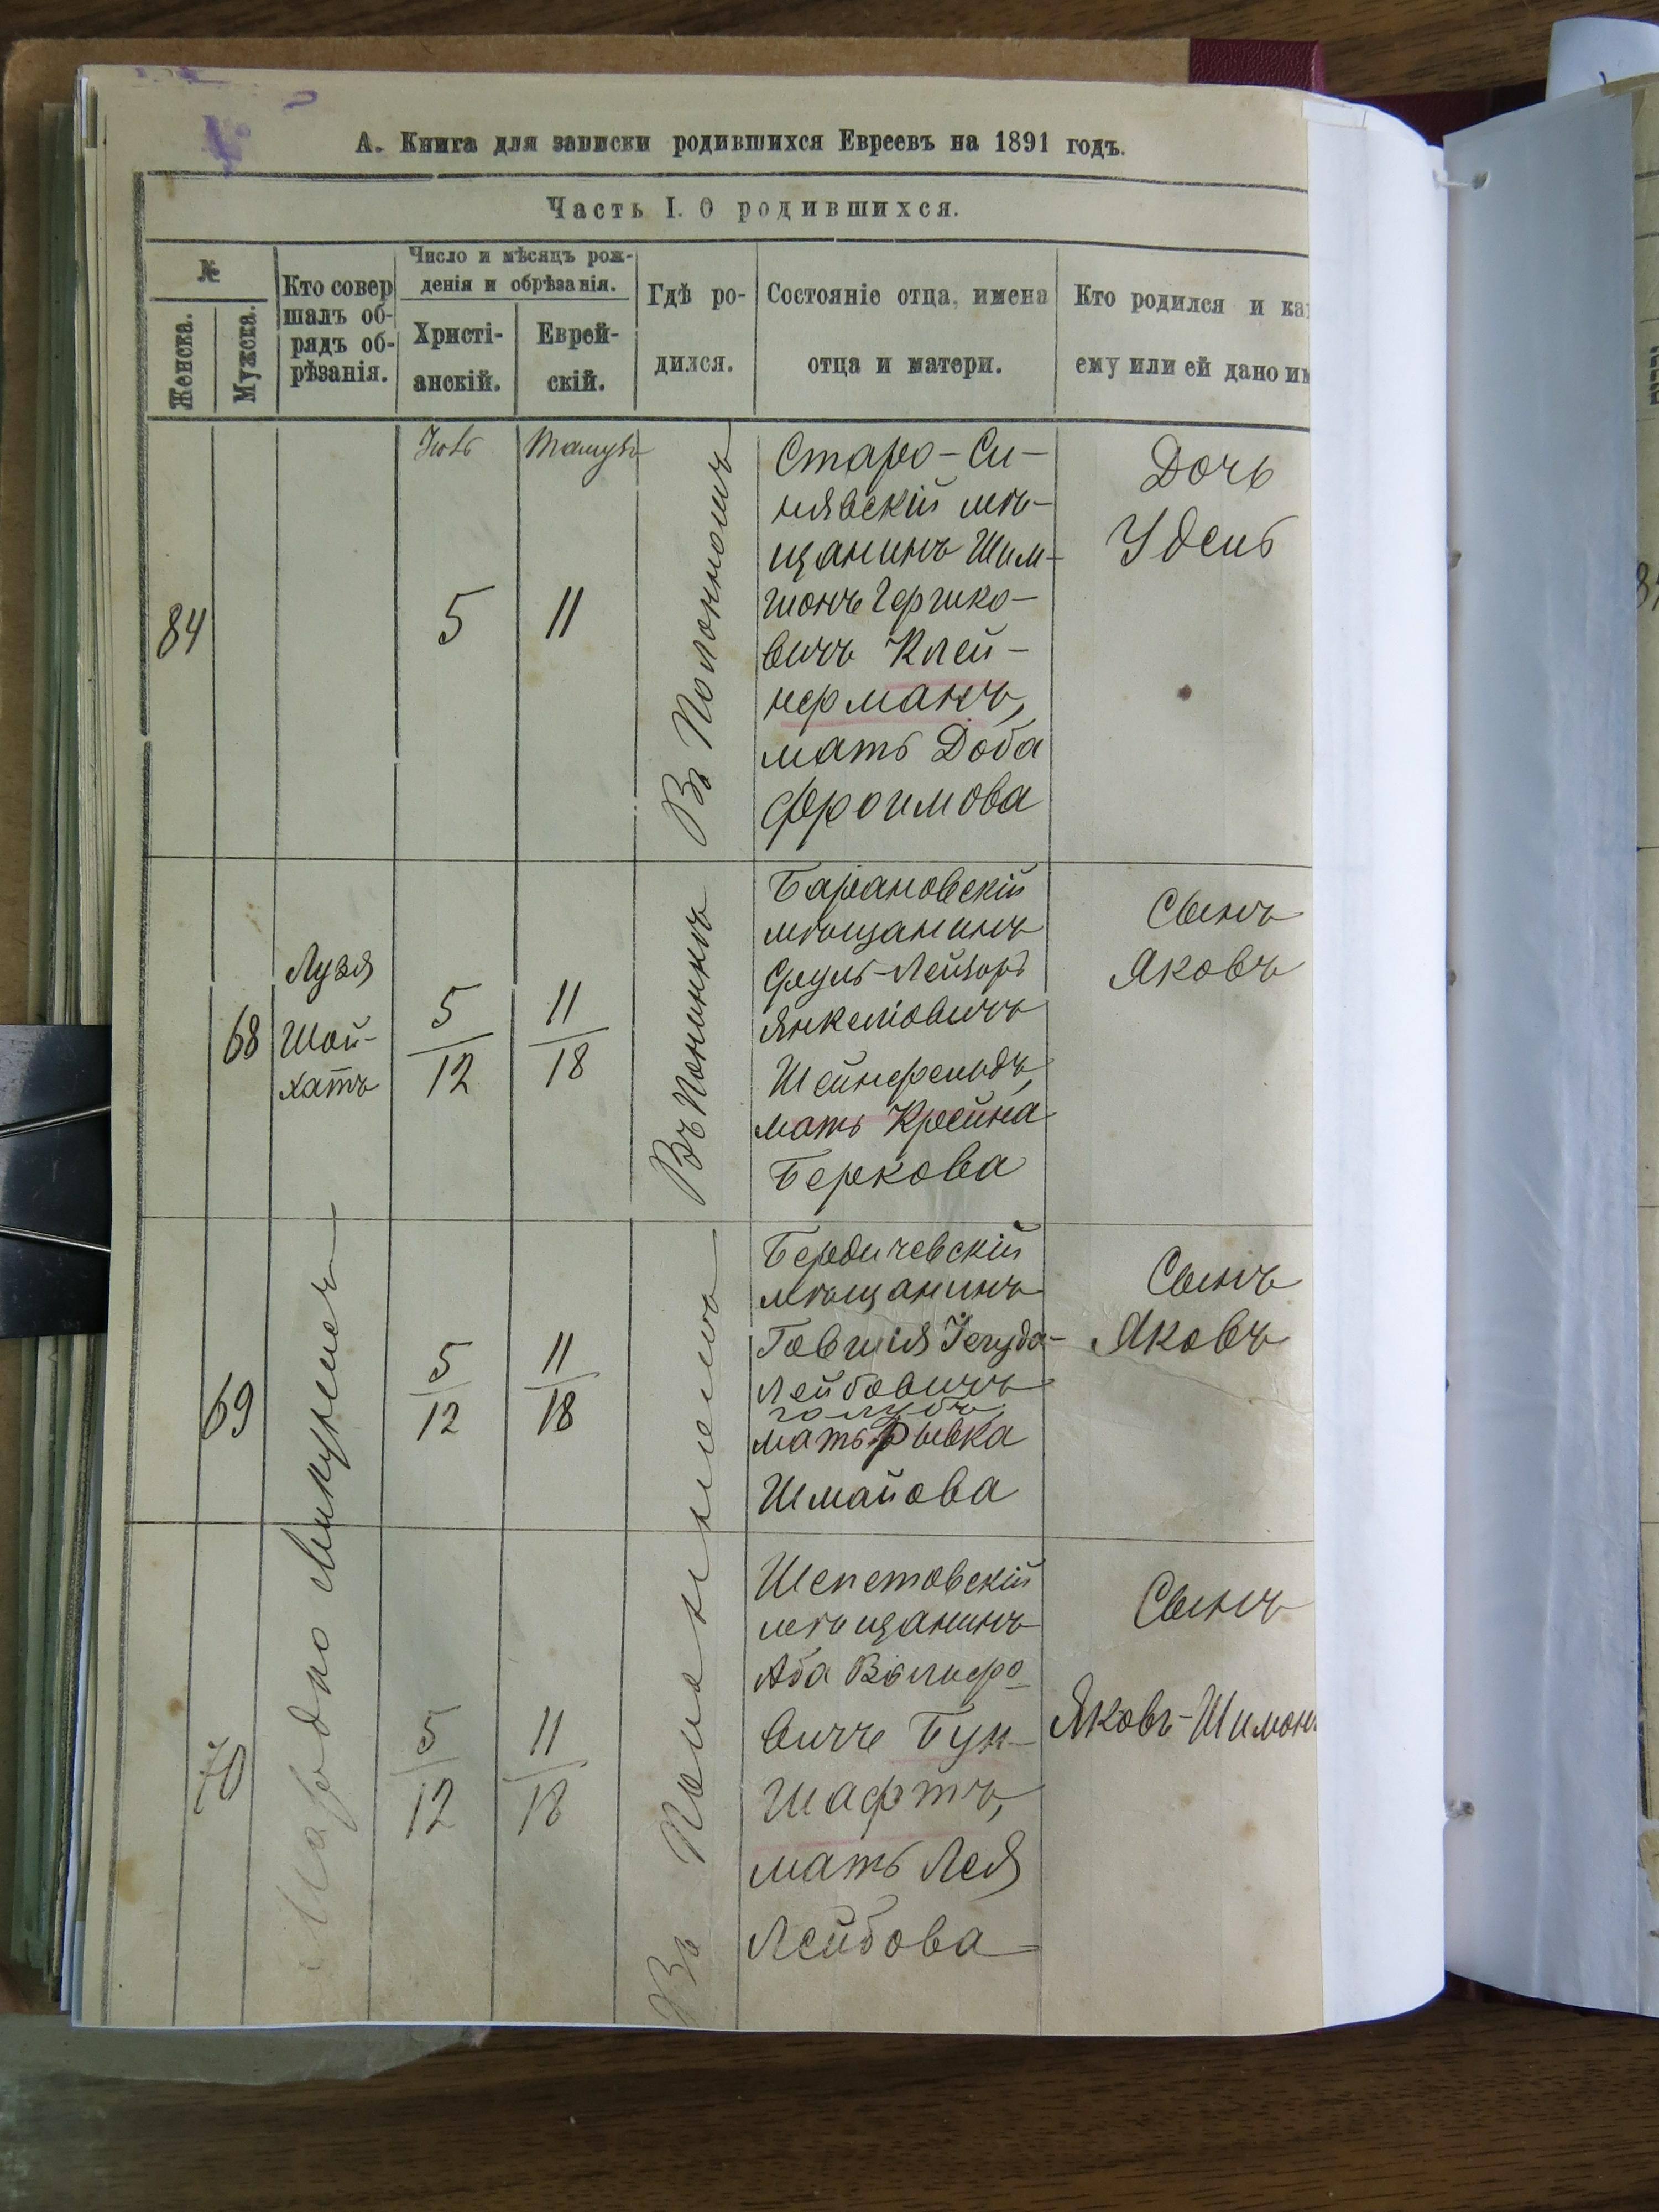 А. Книга для записки родившихся Евреевъ на 1891 годъ.
Часть I. О родившихся.
№
Женска.
Мужска.
Кто совер
шалъ об-
рядъ об-
рѣзанія.
Число и мѣсяцъ рож-
денія и обрѣзанія.
Христі-
анскій.
Еврей-
скій.
Гдѣ ро-
дился.
Состояніе отца, имена
отца и матери.
Кто родился и ка
ему или ей дано им
84
Тамузъ
5
11
Въ Полонномъ
Старо-Си-
нявскій мѣ-
щанинъ Шим-
шонъ Гершко-
вичъ Клей-
нерманъ,
мать Доба
Фроимова
Дочь
Удель
68
Лузя
Шой-
хатъ
5
12
11
18
Въ Понинкѣ
Барановскій
мѣщанинъ
Сруль-Лейзоръ
Янкеліовичъ
Шейнфельдъ,
мать Крейна
Беркова
Сынъ
Яковъ
69
5
12
11
18
Бердичевскій
мѣщанинъ
Гавшія Іегуда-
Лейбовичъ
голубъ,
мать Рывка
Шмайова
Сынъ
Яковъ
70
5
12
11
18
Въ Полонномъ
Шепетовскій
мѣщанинъ
Аба Вольфо
вичъ Бун-
шафтъ,
мать Лея
Лейбова
Сынъ
Яковъ-Шимонъ